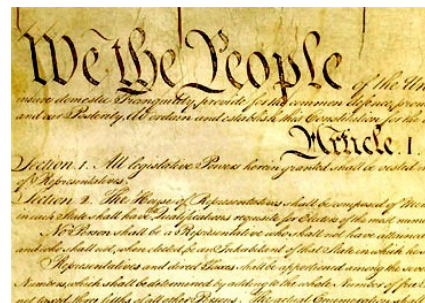 We the People of the Un
insure domestic Tranquility, provide for the common defence, prom
and our Posterity, do ordain and establish this Constitution for the
Article. I.
Section. 1. All legislative Powers herein granted shall be vested in
of Representatives.
Section. 2. The House of Representatives shall be composed of Mem
in each State shall have Qualifications requisite for Electors of the most nume
No Person shall be a Representative who shall not have attained
and who shall not, when elected, be an Inhabitant of that State in which he
Representatives and direct Taxes shall be apportioned among the seve
Numbers, which shall be determined by adding to the whole Number of free
not taxed, three fifths of all other Persons. The actual Enumeration shall